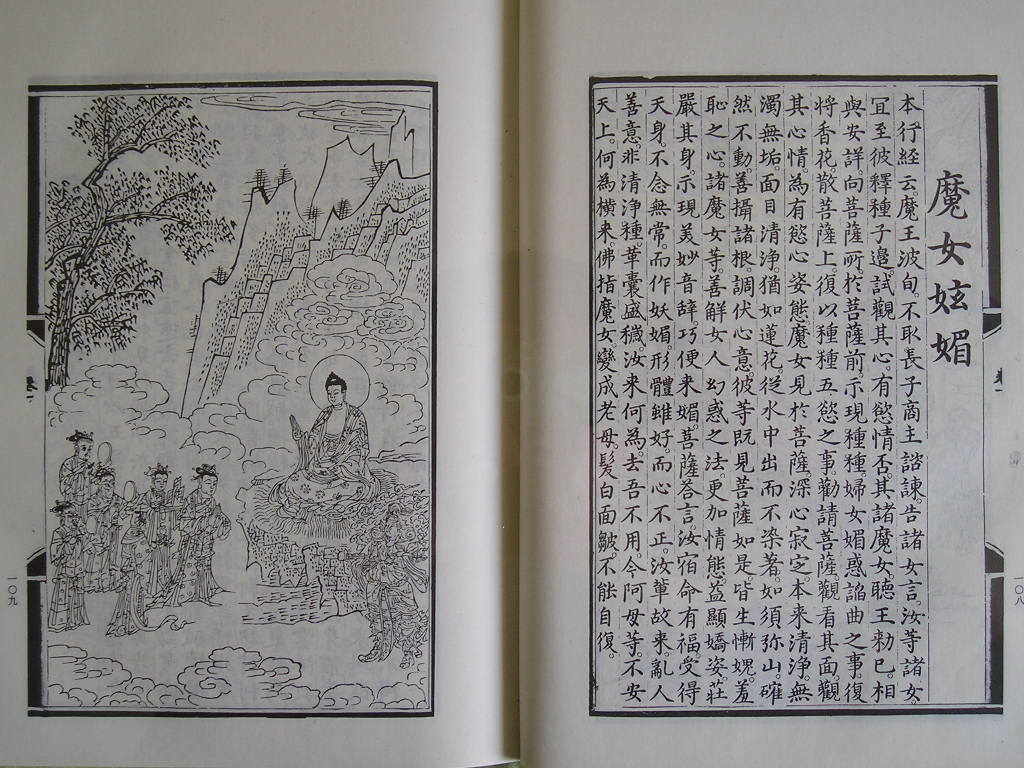 魔女炫媚
本行経云。魔王波旬。不取長子商主諮諫。告諸女言。汝等諸女。
冝至彼釋種子邊。試觀其心。有慾情否。其諸魔女。聴王勑已。相
與安詳。向菩薩所。於菩薩前。示現種種。婦女媚惑謟曲之事。復
将香花。散菩薩上。復以種種五慾之事。勸請菩薩。觀看其面。觀
其心情。為有慾心姿態。魔女見於菩薩深心寂定。本来清浄。無
濁無垢。面目清浄。猶如蓮花。従水中出而不染著。如須弥山。確
然不動。善攝諸根。調伏心意。彼等既見菩薩如是。皆生慚愧羞
恥之心。諸魔女等。善解女人幻惑之法。更加情態。益顯嬌姿。莊
嚴其身。示現美妙音辞。巧便来媚。菩薩答言。汝宿命有福。受得
天身。不念無常。而作妖媚。形體雖好。而心不正。汝軰故来。亂人
善意。非清浄種。革囊盛穢。汝来何為。去吾不用。今阿母等。不安
天上。何為横来。佛指魔女。變成老母。髪白面皺。不能自復。
卷一
一〇八
卷一
一〇九